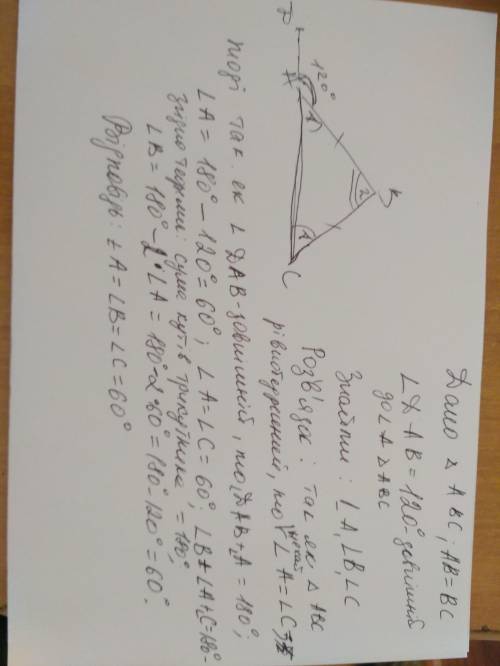 Дано △ ABC; AB=BC
∠DAB=120°-зовнішній
до ∠A △ABC
Знайти: ∠A, ∠B, ∠C
Розв'язок: так як △ ABC
рівнобедрений, то нехай ∠A=∠C
Тоді так як ∠DAB-зовнішній, то ∠DAB+∠A=180°;
∠A=180°-120°=60°; ∠A=∠C=60°; ∠B+∠A+∠C=180°-
згідно теореми: сума кутів трикутника =180°,
∠B=180°-2·∠A=180°-2·60°=180°-120°=60°.
Відповідь: ∠A=∠B=∠C=60°
D
A
120°
1
B
2
1
C